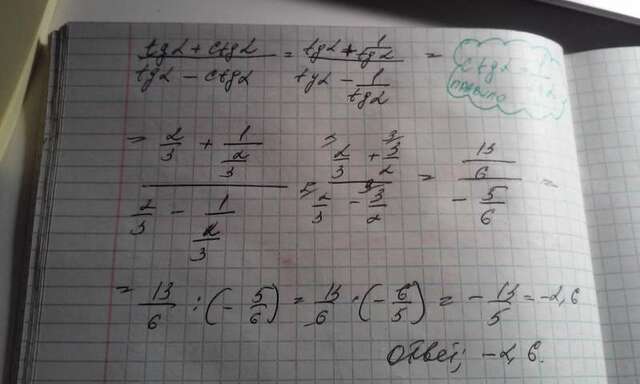 (tgα + ctgα)/(tgα − ctgα) = (tgα + 1/tgα)/(tgα − 1/tgα) =
ctgα = 1/tgα
правило
= (2/3 + 1/(2/3))/(2/3 − 1/(2/3)) = (2/3 + 3/2)/(2/3 − 3/2) = (13/6)/(−5/6) =
= 13/6 : (−5/6) = 13/6 · (−6/5) = −13/5 = −2,6
Ответ: −2,6.